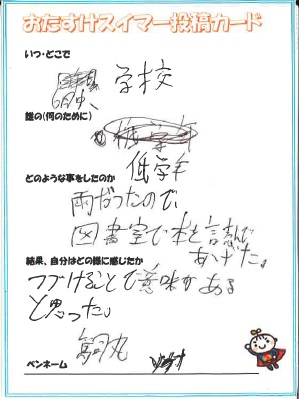 おたすけスイマー投稿カード
いつ・どこで
学校
誰の(何のために)
低学年
どのような事をしたのか
雨だったので、
図書室で本を読んで
あげた。
結果、自分はどの様に感じたか
つづけることで意味がある
と思った。
ペンネーム